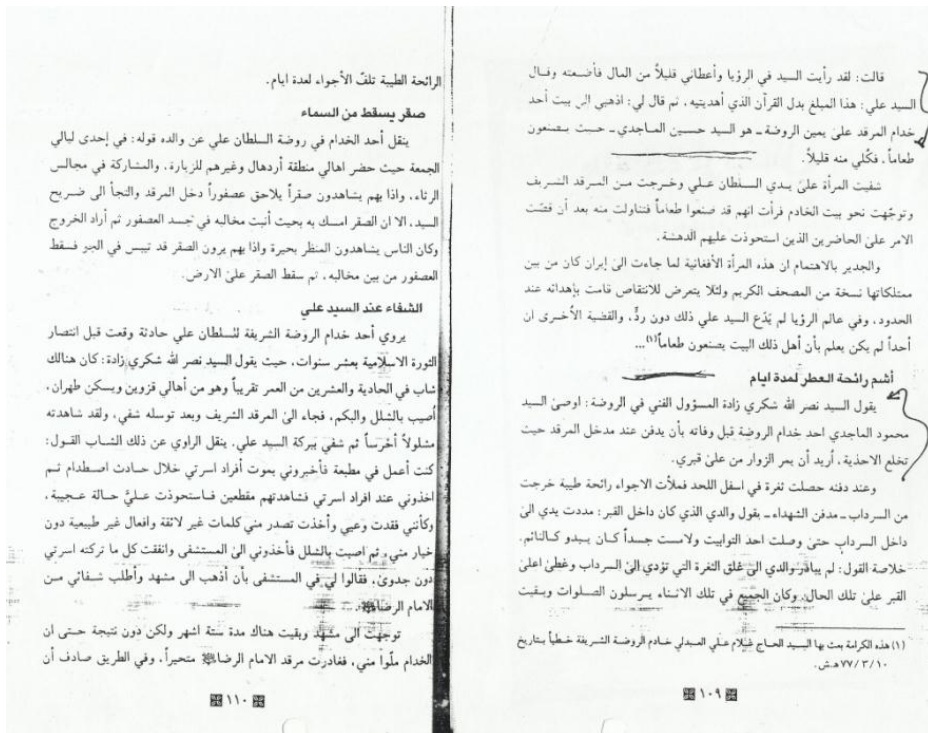 قالت: لقد رأيت السيد في الرؤيا وأعطاني قليلاً من المال فأضعته وقال
السيد علي: هذا المبلغ بدل القرآن الذي أهديتيه، ثم قال لي: اذهبي الى بيت أحد
خدام المرقد على يمين الروضة ـ هو السيد حسين الماجدي ـ حيث يصنعون
طعاماً، فكُلي منه قليلاً.
شفيت المرأة على يدي السلطان علي وخرجت من المرقد الشريف
وتوجّهت نحو بيت الخادم فرأت انهم قد صنعوا طعاماً فتناولت منه بعد أن قصّت
الامر على الحاضرين الذين استحوذت عليهم الدهشة.
والجدير بالاهتمام ان هذه المرأة الأفغانية لما جاءت الى إيران كان من بين
ممتلكاتها نسخة من المصحف الكريم ولئلا يتعرض للانتقاص قامت بإهدائه عند
الحدود، وفي عالم الرؤيا لم يَدَع السيد علي ذلك دون ردٍّ، والقضية الأخرى ان
أحداً لم يكن يعلم بأن أهل ذلك البيت يصنعون طعاماً(١)...
أشم رائحة العطر لمدة ايام
يقول السيد نصر الله شكري زادة المسؤول الفني في الروضة: اوصى السيد
محمود الماجدي احد خدام الروضة قبل وفاته بأن يدفن عند مدخل المرقد حيث
تخلع الاحذية، أريد أن يمر الزوار من على قبري.
وعند دفنه حصلت ثغرة في اسفل اللحد فملأت الاجواء رائحة طيبة خرجت
من السرداب ـ مدفن الشهداء ـ يقول والدي الذي كان داخل القبر: مددت يدي الى
داخل السرداب حتى وصلت احد التوابيت ولامست جسداً كان يبدو كالنائم.
خلاصة القول: لم يبادر والدي الى غلق الثغرة التي تؤدي الى السرداب وغطى اعلى
القبر على تلك الحال، وكان الجميع في تلك الاثناء يرسلون الصلوات وبقيت
(١) هذه الكرامة بعث بها السيد الحاج غلام علي العبدلي خادم الروضة الشريفة خطياً بتاريخ
٧٧/٣/١٠ هـ.ش.
١٠٩
الرائحة الطيبة تلفّ الأجواء لعدة ايام.
صقر يسقط من السماء
ينقل أحد الخدام في روضة السلطان علي عن والده قوله: في إحدى ليالي
الجمعة حيث حضر اهالي منطقة أردهال وغيرهم للزيارة، والمشاركة في مجالس
الرثاء، واذا بهم يشاهدون صقراً يلاحق عصفوراً دخل المرقد والتجأ الى ضريح
السيد، الا ان الصقر امسك به بحيث أنبت مخالبه في جسد العصفور ثم أراد الخروج
وكان الناس يشاهدون المنظر بحيرة واذا بهم يرون الصقر قد تيبس في الجو فسقط
العصفور من بين مخالبه، ثم سقط الصقر على الارض.
الشفاء عند السيد علي
يروي أحد خدام الروضة الشريفة للسلطان علي حادثة وقعت قبل انتصار
الثورة الاسلامية بعشر سنوات، حيث يقول السيد نصر الله شكري زادة: كان هنالك
شاب في الحادية والعشرين من العمر تقريباً وهو من أهالي قزوين ويسكن طهران،
أصيب بالشلل والبكم، فجاء الى المرقد الشريف وبعد توسله شفي، ولقد شاهدته
مشلولاً أخرساً ثم شفي ببركة السيد علي. ينقل الراوي عن ذلك الشاب القول:
كنت أعمل في مطبعة فأخبروني بموت أفراد اسرتي خلال حادث اصطدام ثم
اخذوني عند افراد اسرتي فشاهدتهم مقطعين فاستحوذت عليَّ حالة عجيبة،
وكأنني فقدت وعيي وأخذت تصدر مني كلمات غير لائقة وافعال غير طبيعية دون
خيار مني، ثم اصبت بالشلل فأخذوني الى المستشفى وانفقت كل ما تركته اسرتي
دون جدوى، فقالوا لي في المستشفى بأن أذهب الى مشهد وأطلب شفائي من
الامام الرضا.
توجهت الى مشهد وبقيت هناك مدة ستة اشهر ولكن دون نتيجة حتى ان
الخدام ملّوا مني، فغادرت مرقد الامام الرضا متحيراً، وفي الطريق صادف أن
١١٠